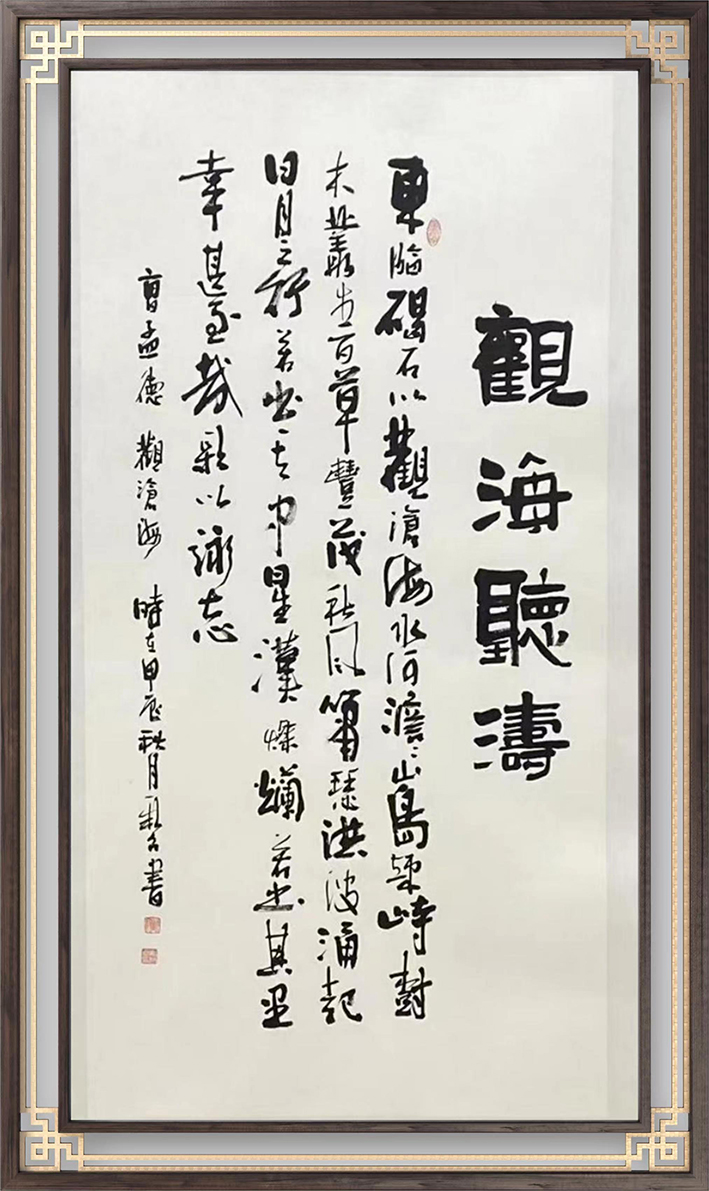 觀海聽濤
東臨碣石以觀滄海水何澹〻山島竦峙樹
木叢生百草豐茂秋風蕭瑟洪波涌起
日月之行若出其中星漢燦爛若出其里
幸甚至哉歌以詠志
曹孟德 觀滄海 時在甲辰秋月書